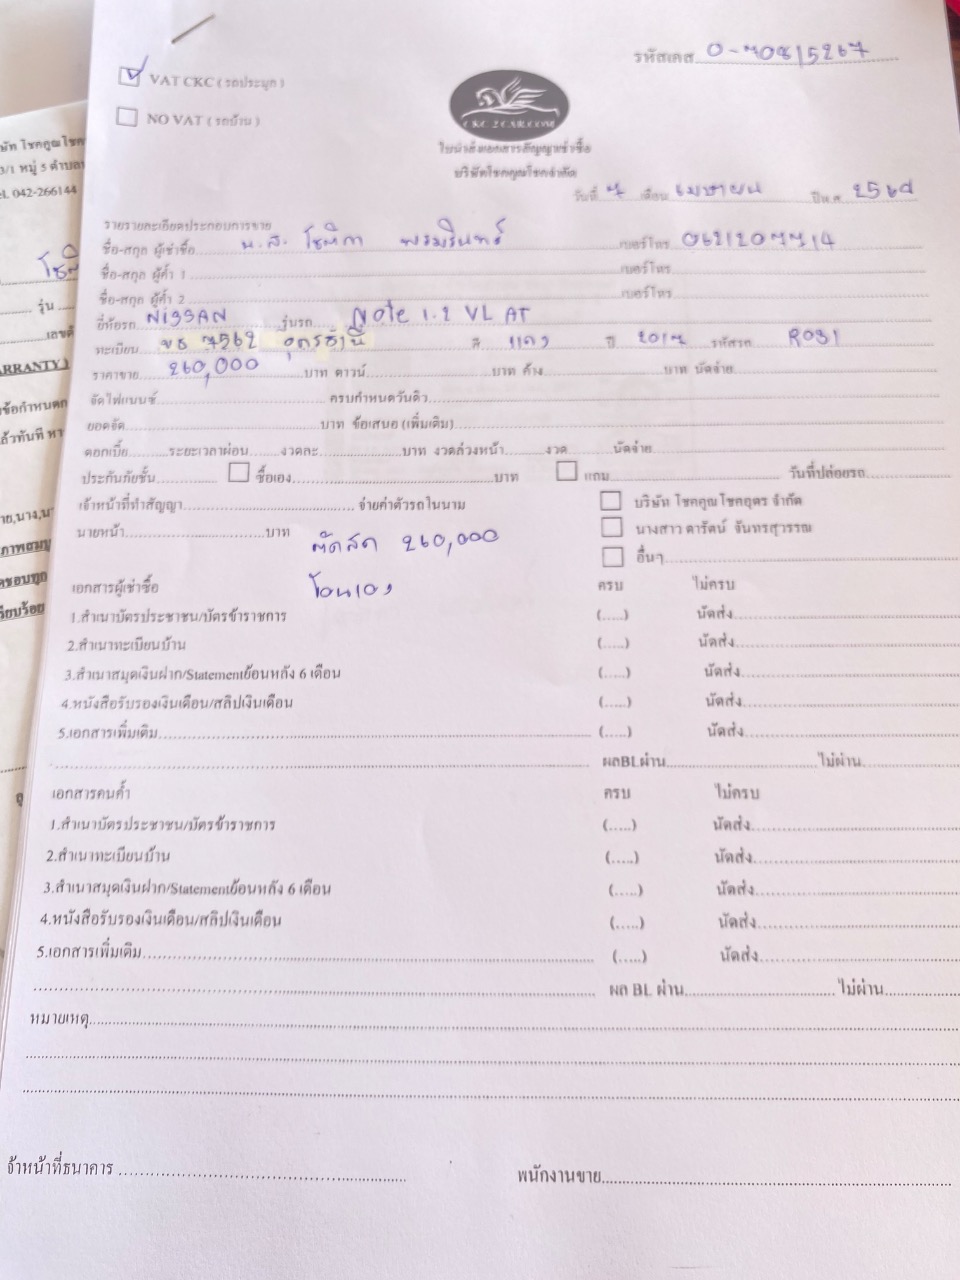 รหัสเคส 0-70815267
VAT CKC (รถประมูล)
NO VAT (รถบ้าน)
ใบนำส่งเอกสารสัญญาเช่าซื้อ
บริษัทโชคคูณโชคจำกัด
วันที่ 7 เดือน เมษายน ปีพ.ศ. 2568
รายรายละเอียดประกอบการขาย
ชื่อ-สกุล ผู้เช่าซื้อ น.ส. โชติกา พรมรินทร์ เบอร์โทร 0621207714
ชื่อ-สกุล ผู้ค้ำ 1 เบอร์โทร
ชื่อ-สกุล ผู้ค้ำ 2 เบอร์โทร
ยี่ห้อรถ NISSAN รุ่นรถ Note 1.2 VL AT
ทะเบียน ขธ 7562 อุดรธานี สี แดง ปี 2017 รหัสรถ R031
ราคาขาย 260,000 บาท ดาวน์ บาท ค้าง บาท นัดจ่าย
จัดไฟแนนซ์ ครบกำหนดวันดิว
ยอดจัด บาท ข้อเสนอ (เพิ่มเติม)
ดอกเบี้ย ระยะเวลาผ่อน งวดละ บาท งวดล่วงหน้า งวด นัดจ่าย
ประกันภัยชั้น ซื้อเอง บาท แถม วันที่ปล่อยรถ
เจ้าหน้าที่ทำสัญญา จ่ายค่าตัวรถในนาม
บริษัท โชคคูณโชคอุดร จำกัด
นายหน้า บาท
นางสาว ดารัตน์ จันทรสุวรรณ
ตัดสด 260,000
อื่นๆ
เอกสารผู้เช่าซื้อ โอนเอง ครบ ไม่ครบ
1.สำเนาบัตรประชาชน/บัตรข้าราชการ (.....) นัดส่ง
2.สำเนาทะเบียนบ้าน (.....) นัดส่ง
3.สำเนาสมุดเงินฝาก/Statementย้อนหลัง 6 เดือน (.....) นัดส่ง
4.หนังสือรับรองเงินเดือน/สลิปเงินเดือน (.....) นัดส่ง
5.เอกสารเพิ่มเติม (.....) นัดส่ง
ผลBLผ่าน ไม่ผ่าน
เอกสารคนค้ำ ครบ ไม่ครบ
1.สำเนาบัตรประชาชน/บัตรข้าราชการ (.....) นัดส่ง
2.สำเนาทะเบียนบ้าน (.....) นัดส่ง
3.สำเนาสมุดเงินฝาก/Statementย้อนหลัง 6 เดือน (.....) นัดส่ง
4.หนังสือรับรองเงินเดือน/สลิปเงินเดือน (.....) นัดส่ง
5.เอกสารเพิ่มเติม (.....) นัดส่ง
ผล BL ผ่าน ไม่ผ่าน
หมายเหตุ
จ้าหน้าที่ธนาคาร พนักงานขาย
042-266144
รุ่น